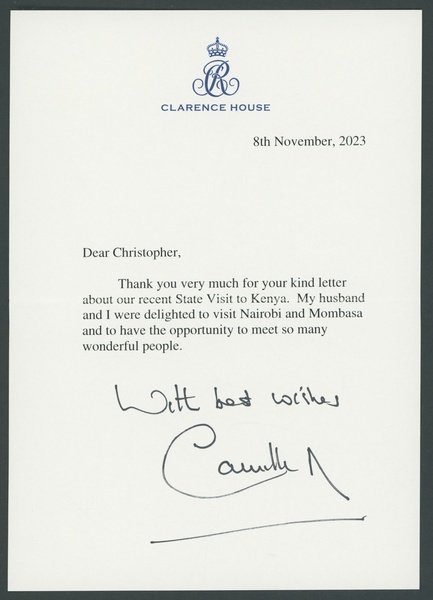 CLARENCE HOUSE
8th November, 2023
Dear Christopher,
Thank you very much for your kind letter
about our recent State Visit to Kenya. My husband
and I were delighted to visit Nairobi and Mombasa
and to have the opportunity to meet so many
wonderful people.
With best wishes
Camilla R